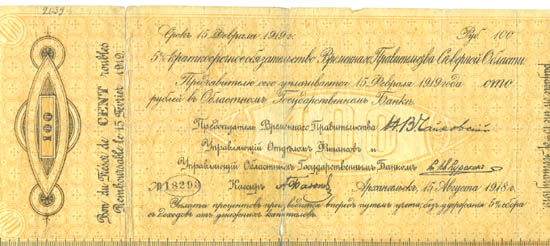 2039
Срокъ 15 Февраля 1919 г. Руб. 100
5% Краткосрочное обязательство Временнаго Правительства Сѣверной Области
Предъявителю сего уплачивается 15 Февраля 1919 года сто
рублей въ Областномъ Государственномъ Банкѣ
Предсѣдатель Временнаго Правительства Н.В. Чайковскій
Управляющій Отдѣломъ Финансовъ и
Управляющій Областнымъ Государственнымъ Банкомъ
№ 18293 Кассиръ Архангельскъ, 15 Августа 1918 г.
Уплата процентовъ производится впередъ путемъ учета; безъ удержанія 5% сбора
съ доходовъ отъ денежныхъ капиталовъ.
100
Bon du Trésor de CENT roubles
Remboursable le 15 Février 1919.